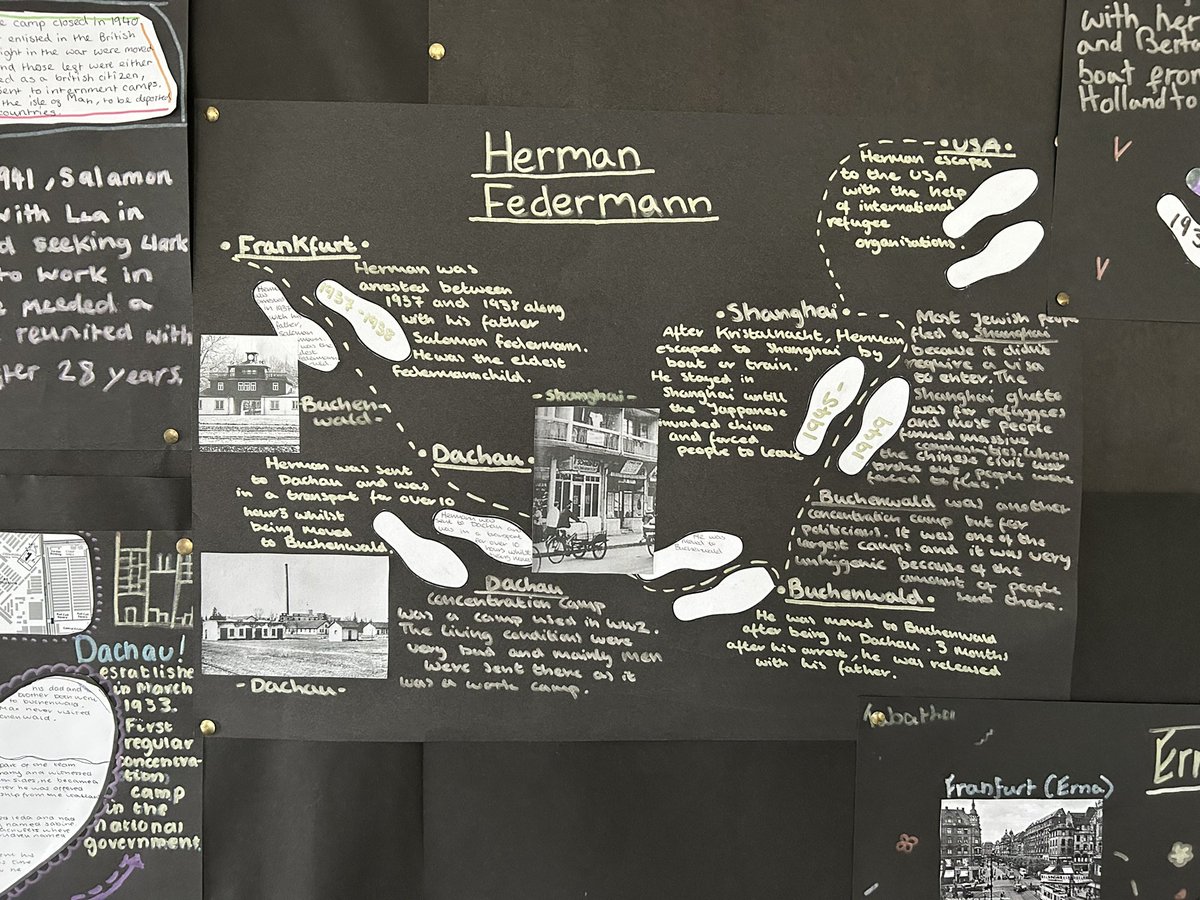 e camp closed in 1940
enlisted in the British
ight in the war were moved
nd those left were either
ed as a british citizen,
sent to internment camps.
the isle of Man, to be deported
countries.
941, Salamon
with Lea in
d seeking Clark
to work in
e needed a
reunited with
fter 28 years.
Herman
Federmann
• Frankfurt •
Herman was
arrested between
1937 and 1938 along
with his father
Salomon Federmann.
He was the eldest
Federmannchild.
1937-1938
Buchen-
wald-
• Dachau •
Herman was sent
to Dachau and was
in a transport for over 10
hours whilst
being moved
to Buchenwald.
Herman was
sent to Dachau and
was in a transport
for over 10
hours whilst
- Dachau -
Dachau
concentration camp
was a camp used in WW2.
The living conditions were
very bad and mainly men
were sent there as it
was a work camp.
- Shanghai -
He was
moved to
Buchenwald
• Buchenwald •
He was moved to Buchenwald
after being in Dachau. 3 months
after his arrest, he was released
with his father.
Buchenwald was another
concentration camp but for
politicians. It was one of the
largest camps and it was very
unhygenic because of the
amount of people
sent there.
• Shanghai •
After Kristalnacht, Herman
escaped to Shanghai by
boat or train.
He stayed in
Shanghai untill
the Jappanese
invaded china
and forced
people to leave
1945-
1949
Most Jewish people
fled to Shanghai
because it didn't
require a visa
to enter. The
Shanghai ghetto
was for refuggees
and most people
formed massive
communities. When
the Chinese civil war
broke out, people were
forced to flee.
• USA •
Herman escaped
to the USA
with the help
of international
refugee
organisations.
with her
and Berta
boat from
Holland to
193
Dachau!
establishe
in March
1933.
First
regular
concentra-
tion
camp
in the
national
government.
his dad and
brother both were
to buchenwald.
Max never visited
chenwald.
part of the team
Tabatha
Ern
Franfurt (Erna)